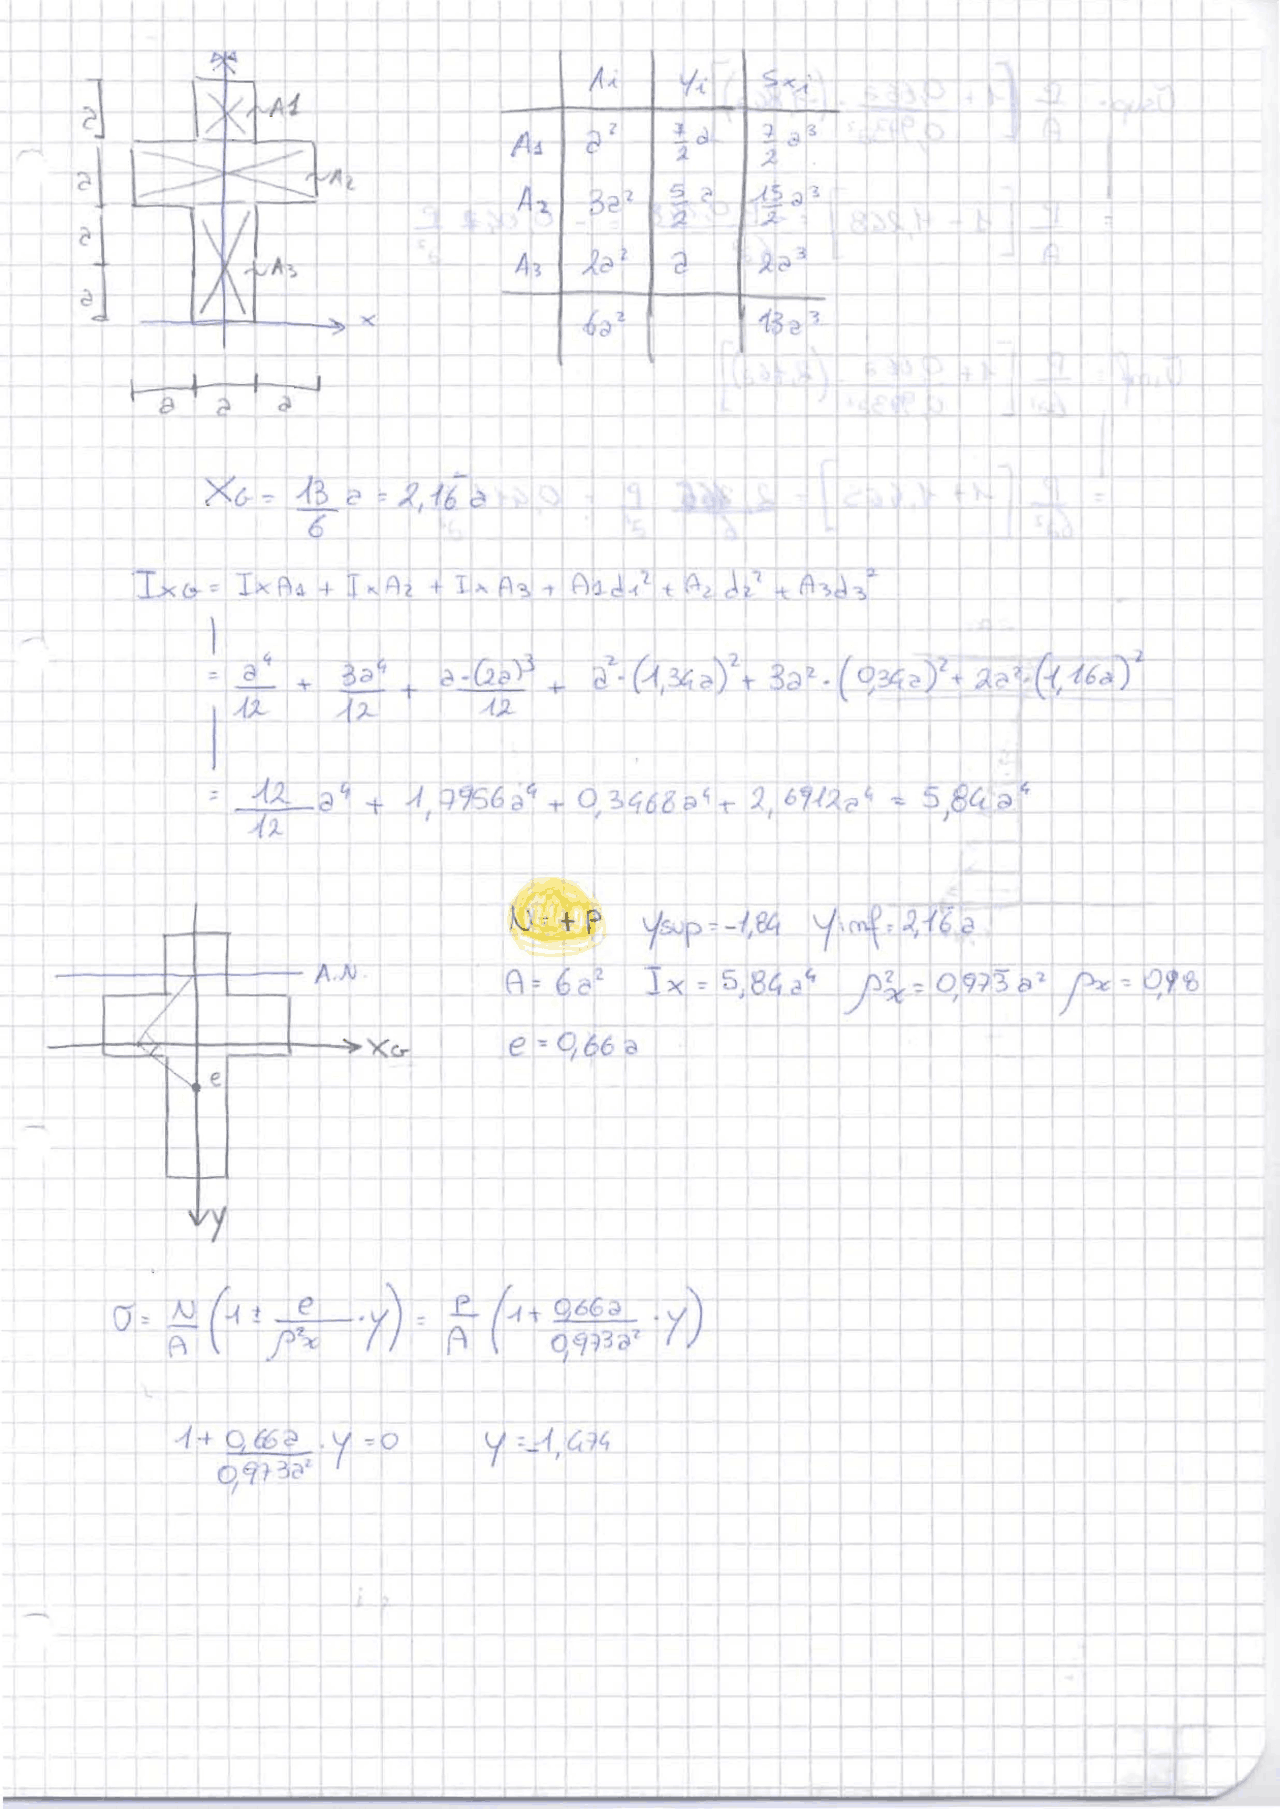 A1
A2
A3
a
a
a
a
x
a a a
Ai yi Sxi
A1 a² 7/2 a 7/2 a³
A2 3a² 5/2 a 15/2 a³
A3 2a² a 2a³
6a² 13a³
XG = 13/6 a = 2,16 a
IxG = IxA1 + IxA2 + IxA3 + A1d1² + A2d2² + A3d3²
= a⁴/12 + 3a⁴/12 + a·(2a)³/12 + a²·(1,34a)² + 3a²·(0,34a)² + 2a²·(1,16a)²
= 12/12 a⁴ + 1,7956a⁴ + 0,3468a⁴ + 2,6912a⁴ = 5,84a⁴
N=+P ysup=-1,84 yinf=2,16a
A=6a² Ix=5,84a⁴ ρ²x=0,973a² ρx=0,98
e=0,66a
A.N.
XG
e
y
σ= N/A (1± e/ρ²x ·y) = P/A (1+ 0,66a/0,973a² ·y)
1+ 0,66a/0,973a² ·y=0 y=-1,474